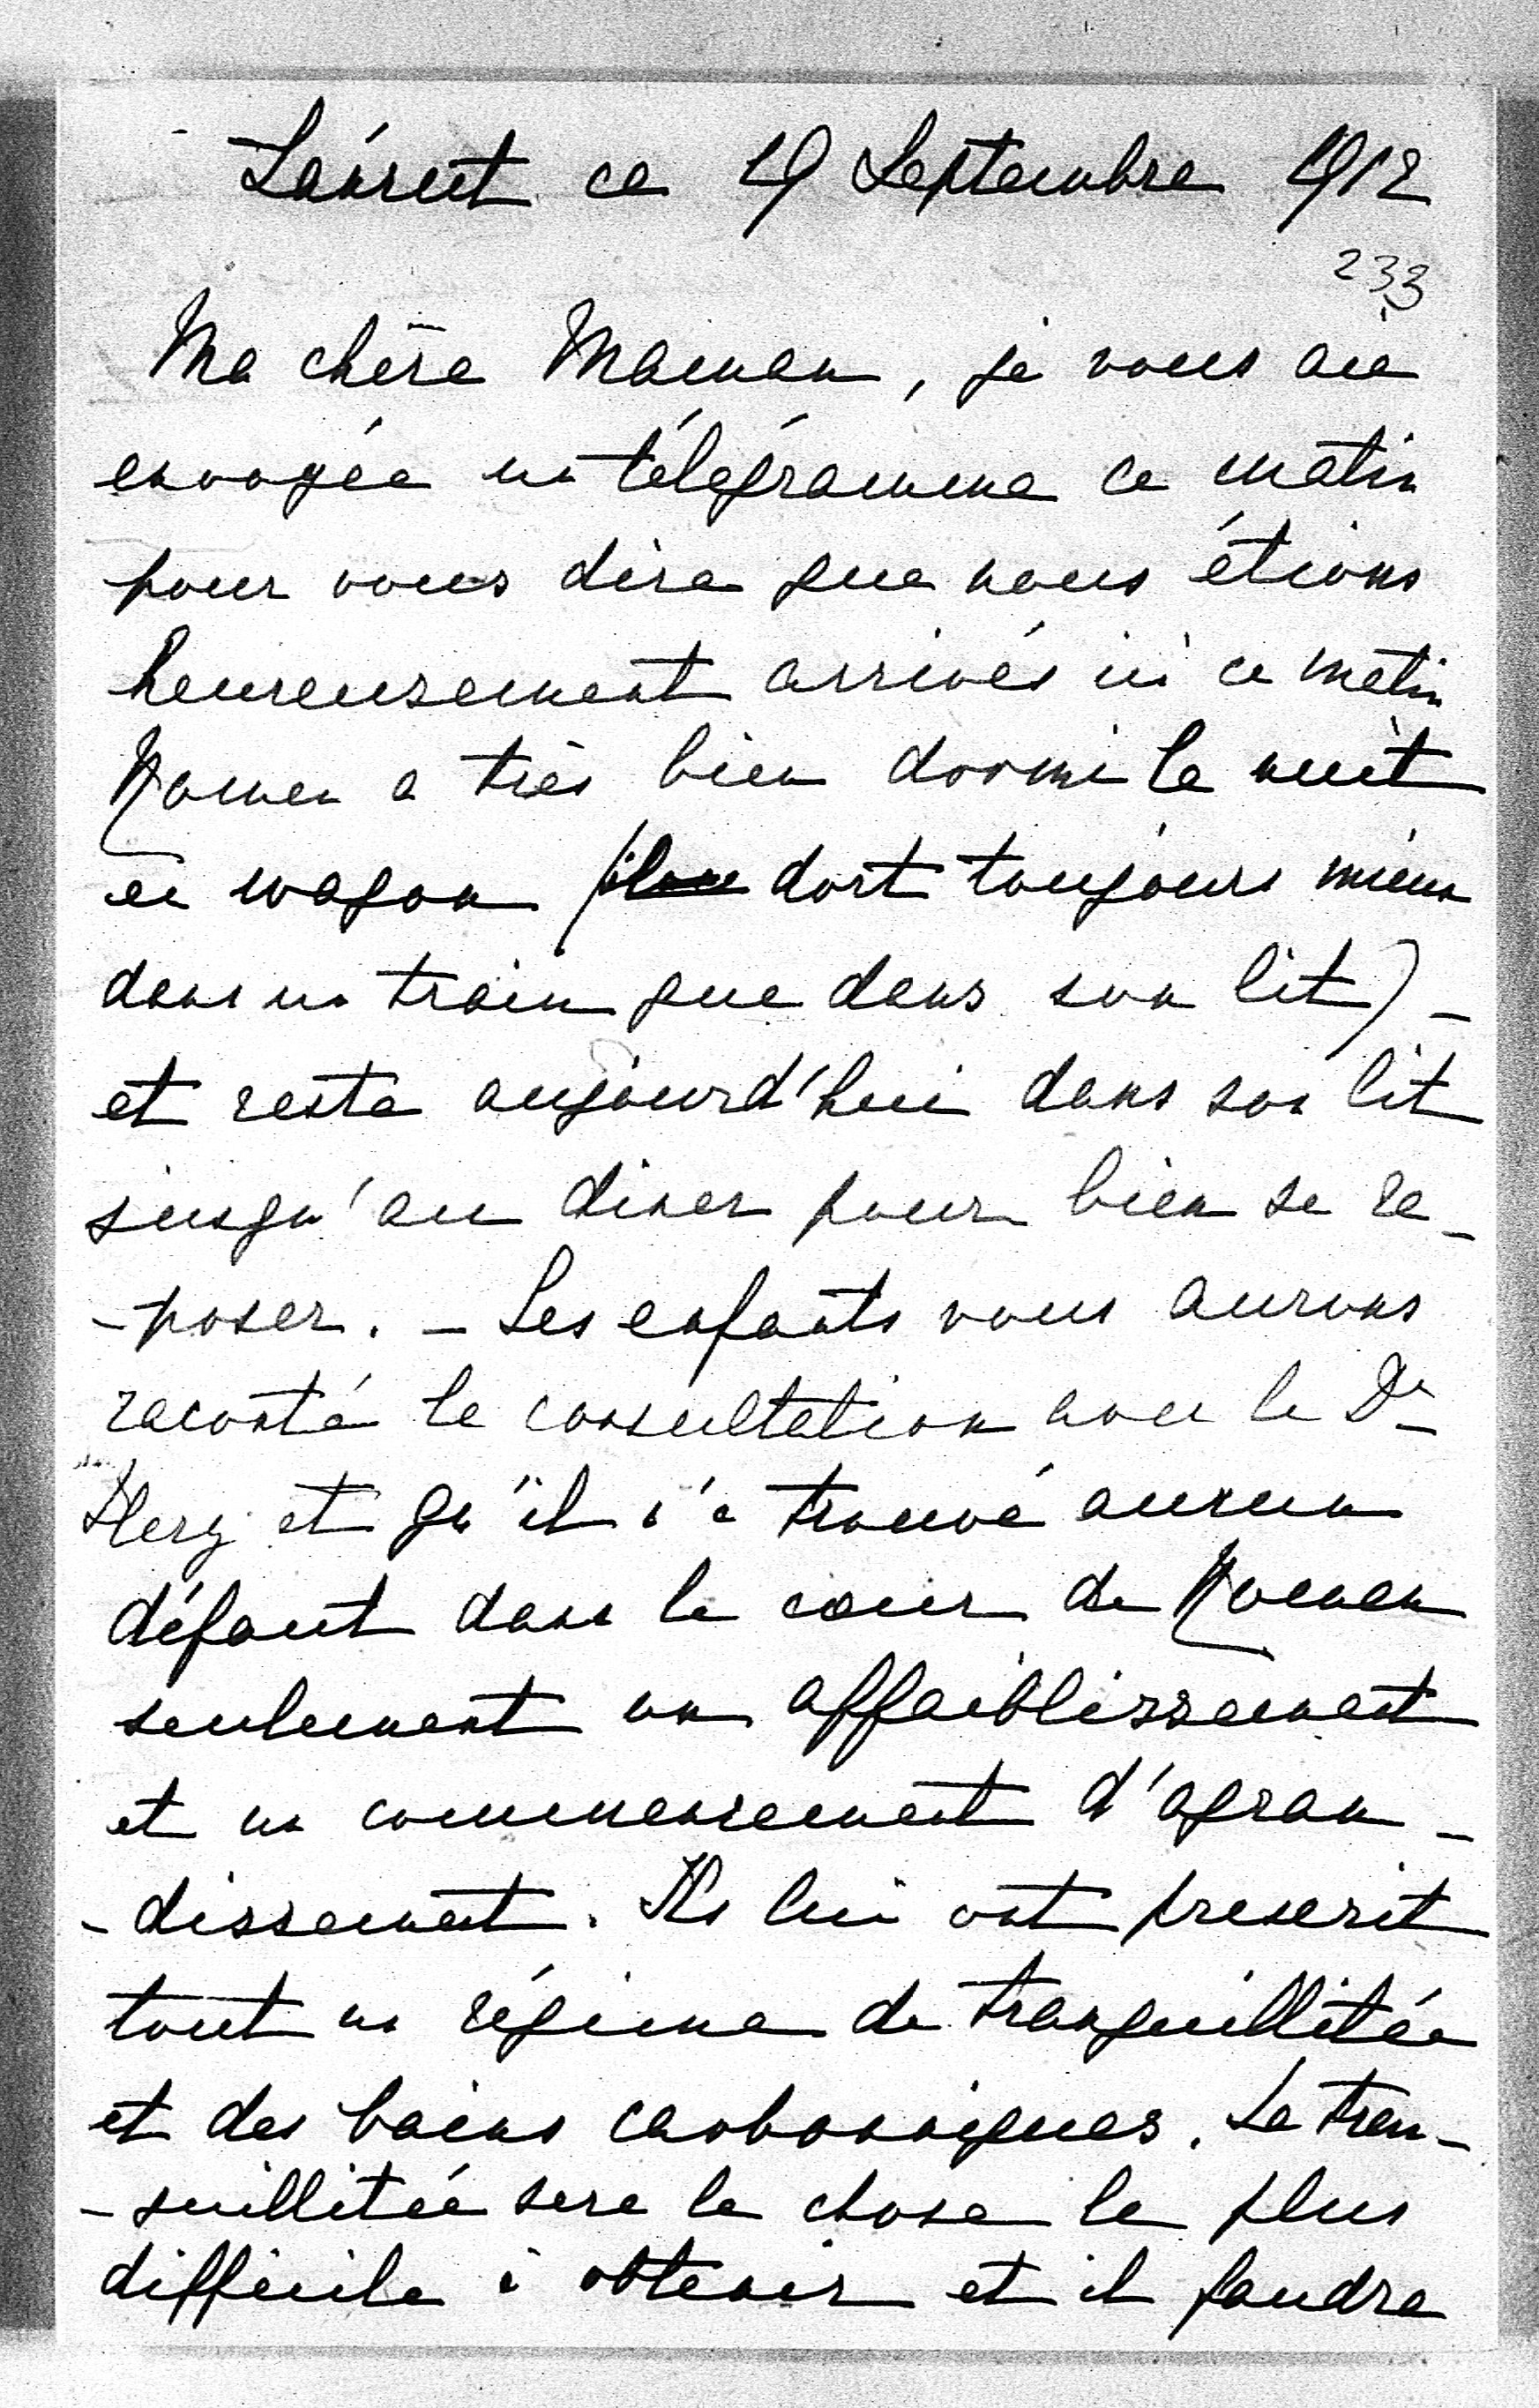 Lancut ce 19 Septembre 1912
233
Ma chère Maman, je vous ai
envoyée un télégramme ce matin
pour vous dire que nous étions
heureusement arrivés ici ce matin
Roman a très bien dormi la nuit
en wagon (il dort toujours mieux
dans un train que dans son lit) -
et reste aujourd'hui dans son lit
jusqu'au diner pour bien se re-
-poser. - Les enfants vous aurons
raconté la consultation avec le Dr
et qu'il n'a trouvé aucun
défaut dans le cœur de Roman
seulement un affaiblissement
et un commencement d'agran-
-dissement. Ils lui ont prescrit
tout un régime de tranquillitée
et des bains carboniques. La tran-
-quillitée sera la chose la plus
difficile à obtenir et il faudra